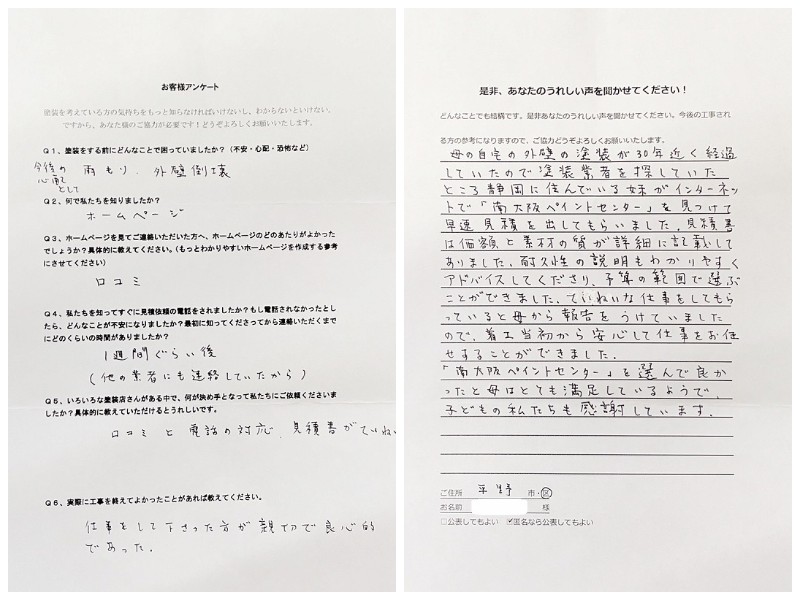 お客様アンケート
塗装を考えている方の気持ちをもっと知らなければいけないし、わからないといけない。
ですから、あなた様のご協力が必要です！どうぞよろしくお願いいたします。
Q1、塗装をする前にどんなことで困っていましたか？（不安・心配・恐怖など）
今後の
心配
として
雨もり、外壁倒壊
Q2、何で私たちを知りましたか？
ホームページ
Q3、ホームページを見てご連絡いただいた方へ、ホームページのどのあたりがよかった
でしょうか？具体的に教えてください。（もっとわかりやすいホームページを作成する参考
にさせてください）
口コミ
Q4、私たちを知ってすぐに見積依頼の電話をされましたか？もし電話されなかったとし
たら、どんなことが不安になりましたか？最初に知ってくださってから連絡いただくまで
にどのくらいの時間がありましたか？
1週間ぐらい後
（他の業者にも連絡していたから）
Q5、いろいろな塗装店さんがある中で、何が決め手となって私たちにご依頼くださいま
したか？具体的に教えていただけるとうれしいです。
口コミと電話の対応、見積書がていね
Q6、実際に工事を終えてよかったことがあれば教えてください。
仕事をして下さった方が親切で良心的
であった。
是非、あなたのうれしい声を聞かせてください！
どんなことでも結構です。是非あなたのうれしい声を聞かせてください。今後の工事され
る方の参考になりますので、ご協力どうぞよろしくお願いいたします。
母の自宅の外壁の塗装が30年近く経過
していたので塗装業者を探していた
ところ静岡に住んでいる妹がインターネッ
トで「南大阪ペイントセンター」を見つけて
早速見積を出してもらいました。見積書
は価額と素材の質が詳細に記載して
ありました。耐久性の説明もわかりやすく
アドバイスしてくださり、予算の範囲で選ぶ
ことができました。ていねいな仕事をしてもら
っていると母から報告をうけていました
ので、着工当初から安心して仕事をお任
せすることができました。
「南大阪ペイントセンター」を選んで良か
ったと母はとても満足しているようで、
子どもの私たちも感謝しています。
ご住所 平野 市・区
お名前 様
□公表してもよい ☑匿名なら公表してもよい